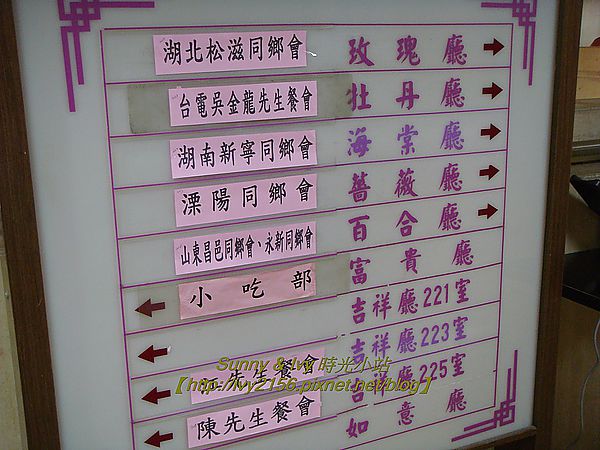 湖北松滋同鄉會 玫瑰廳
台電吳金龍先生餐會 牡丹廳
湖南新寧同鄉會 海棠廳
溧陽同鄉會 薔薇廳
山東昌邑同鄉會、永新同鄉會 百合廳
小吃部 富貴廳
吉祥廳221室
吉祥廳223室
先生餐會 吉祥廳225室
陳先生餐會 如意廳
Sunny & Ivy 時光小站
【http://ivy2156.pixnet.net/blog】